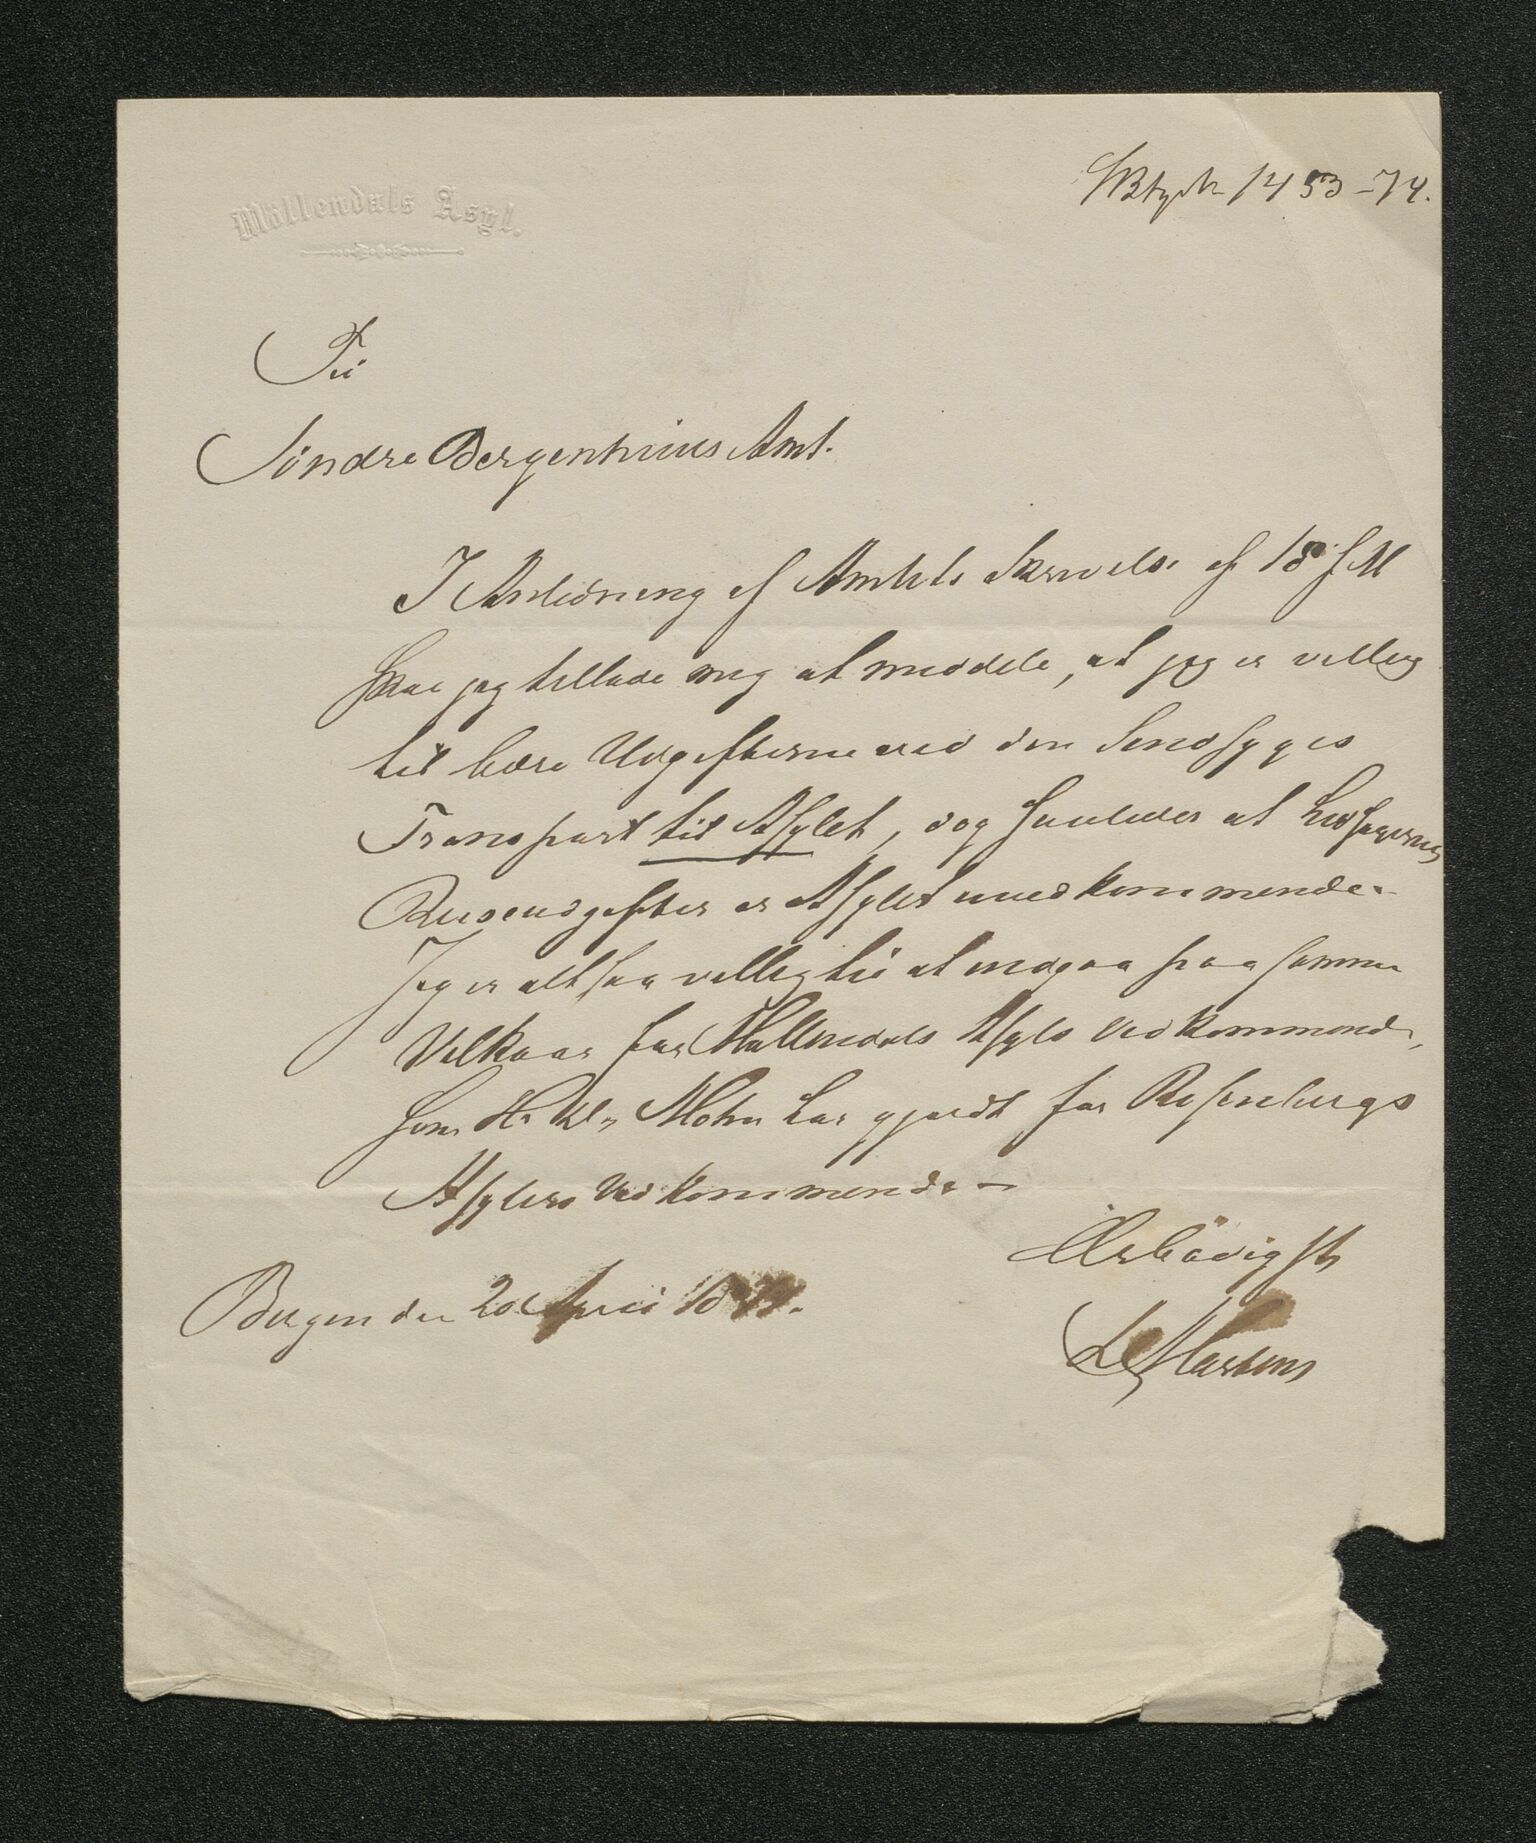 Möllendals Asyl.
1453-74.
Til
Söndre Bergenhuus Amt.
I Anledning af Amtets Skrivelse af 18 f M
skal jeg tillade mig at meddele, at jeg er villig
til bære Udgifterne ved den Sindssyges
Transport til Asylet, dog saaledes at Ledsagernes
Reiseudgifter er Asylet uvedkommende.
Jeg er altsaa villig til at indgaa paa samme
Vilkaar for Möllendals Asyls Vedkommende,
som Hr Kl. Mohn har gjordt for Rosenbergs
Asylers Vedkommende –
Ærbödigst
Bergen den 20 April 1874.
L Martens